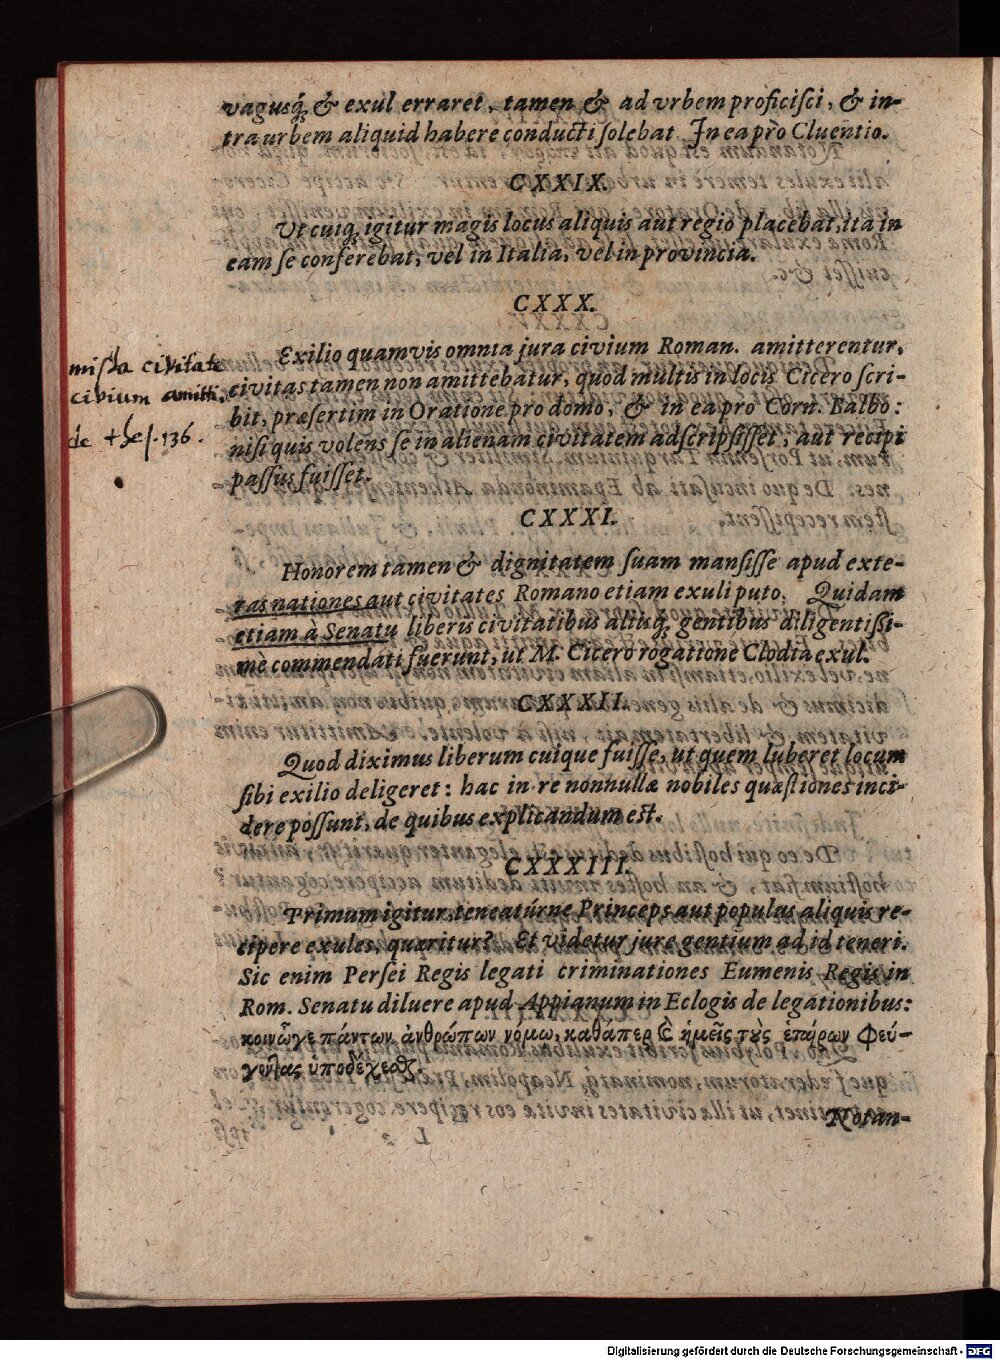 vagusq́; & exul erraret, tamen & ad vrbem proficisci, & in-
tra urbem aliquid habere conducti solebat. In ea prò Cluentio.
CXXIX.
Vt cuiq; igitur magis locus aliquis aut regio placebat, ita in
eam se conferebat, vel in Italia, vel in provincia.
CXXX.
Exilio quamvis omnia jura civium Roman. amitterentur,
civitas tamen non amittebatur, quod multis in locis Cicero scri-
bit, præsertim in Oratione pro domo, & in ea pro Corn. Balbo:
nisi quis volens se in alienam civitatem adscripsisset, aut recipi
passus fuisset.
civitate
civium amitti,
de thes. 136.
CXXXI.
Honorem tamen & dignitatem suam mansisse apud exte-
ras nationes aut civitates Romano etiam exuli puto. Quidam
etiam à Senatu liberis civitatibus aliusq́; gentibus diligentissi-
mè commendati fuerunt, ut M. Cicero rogatione Clodia exul.
CXXXII.
Quod diximus liberum cuique fuisse, ut quem luberet locum
sibi exilio deligeret: hac in re nonnullæ nobiles quæstiones inci-
dere possunt, de quibus explicandum est.
CXXXIII.
Primum igitur, teneatúrne Princeps aut populus aliquis re-
cipere exules, quæritur? Et videtur jure gentium ad id teneri.
Sic enim Persei Regis legati criminationes Eumenis Regis in
Rom. Senatu diluere apud Appianum in Eclogis de legationibus:
κοινῷ γε πάντων ἀνθρώπων νόμῳ, καθάπερ καὶ ἡμεῖς τοὺς ἑτέρων φεύ-
γοντας ὑποδέχεσθε.
Notan-